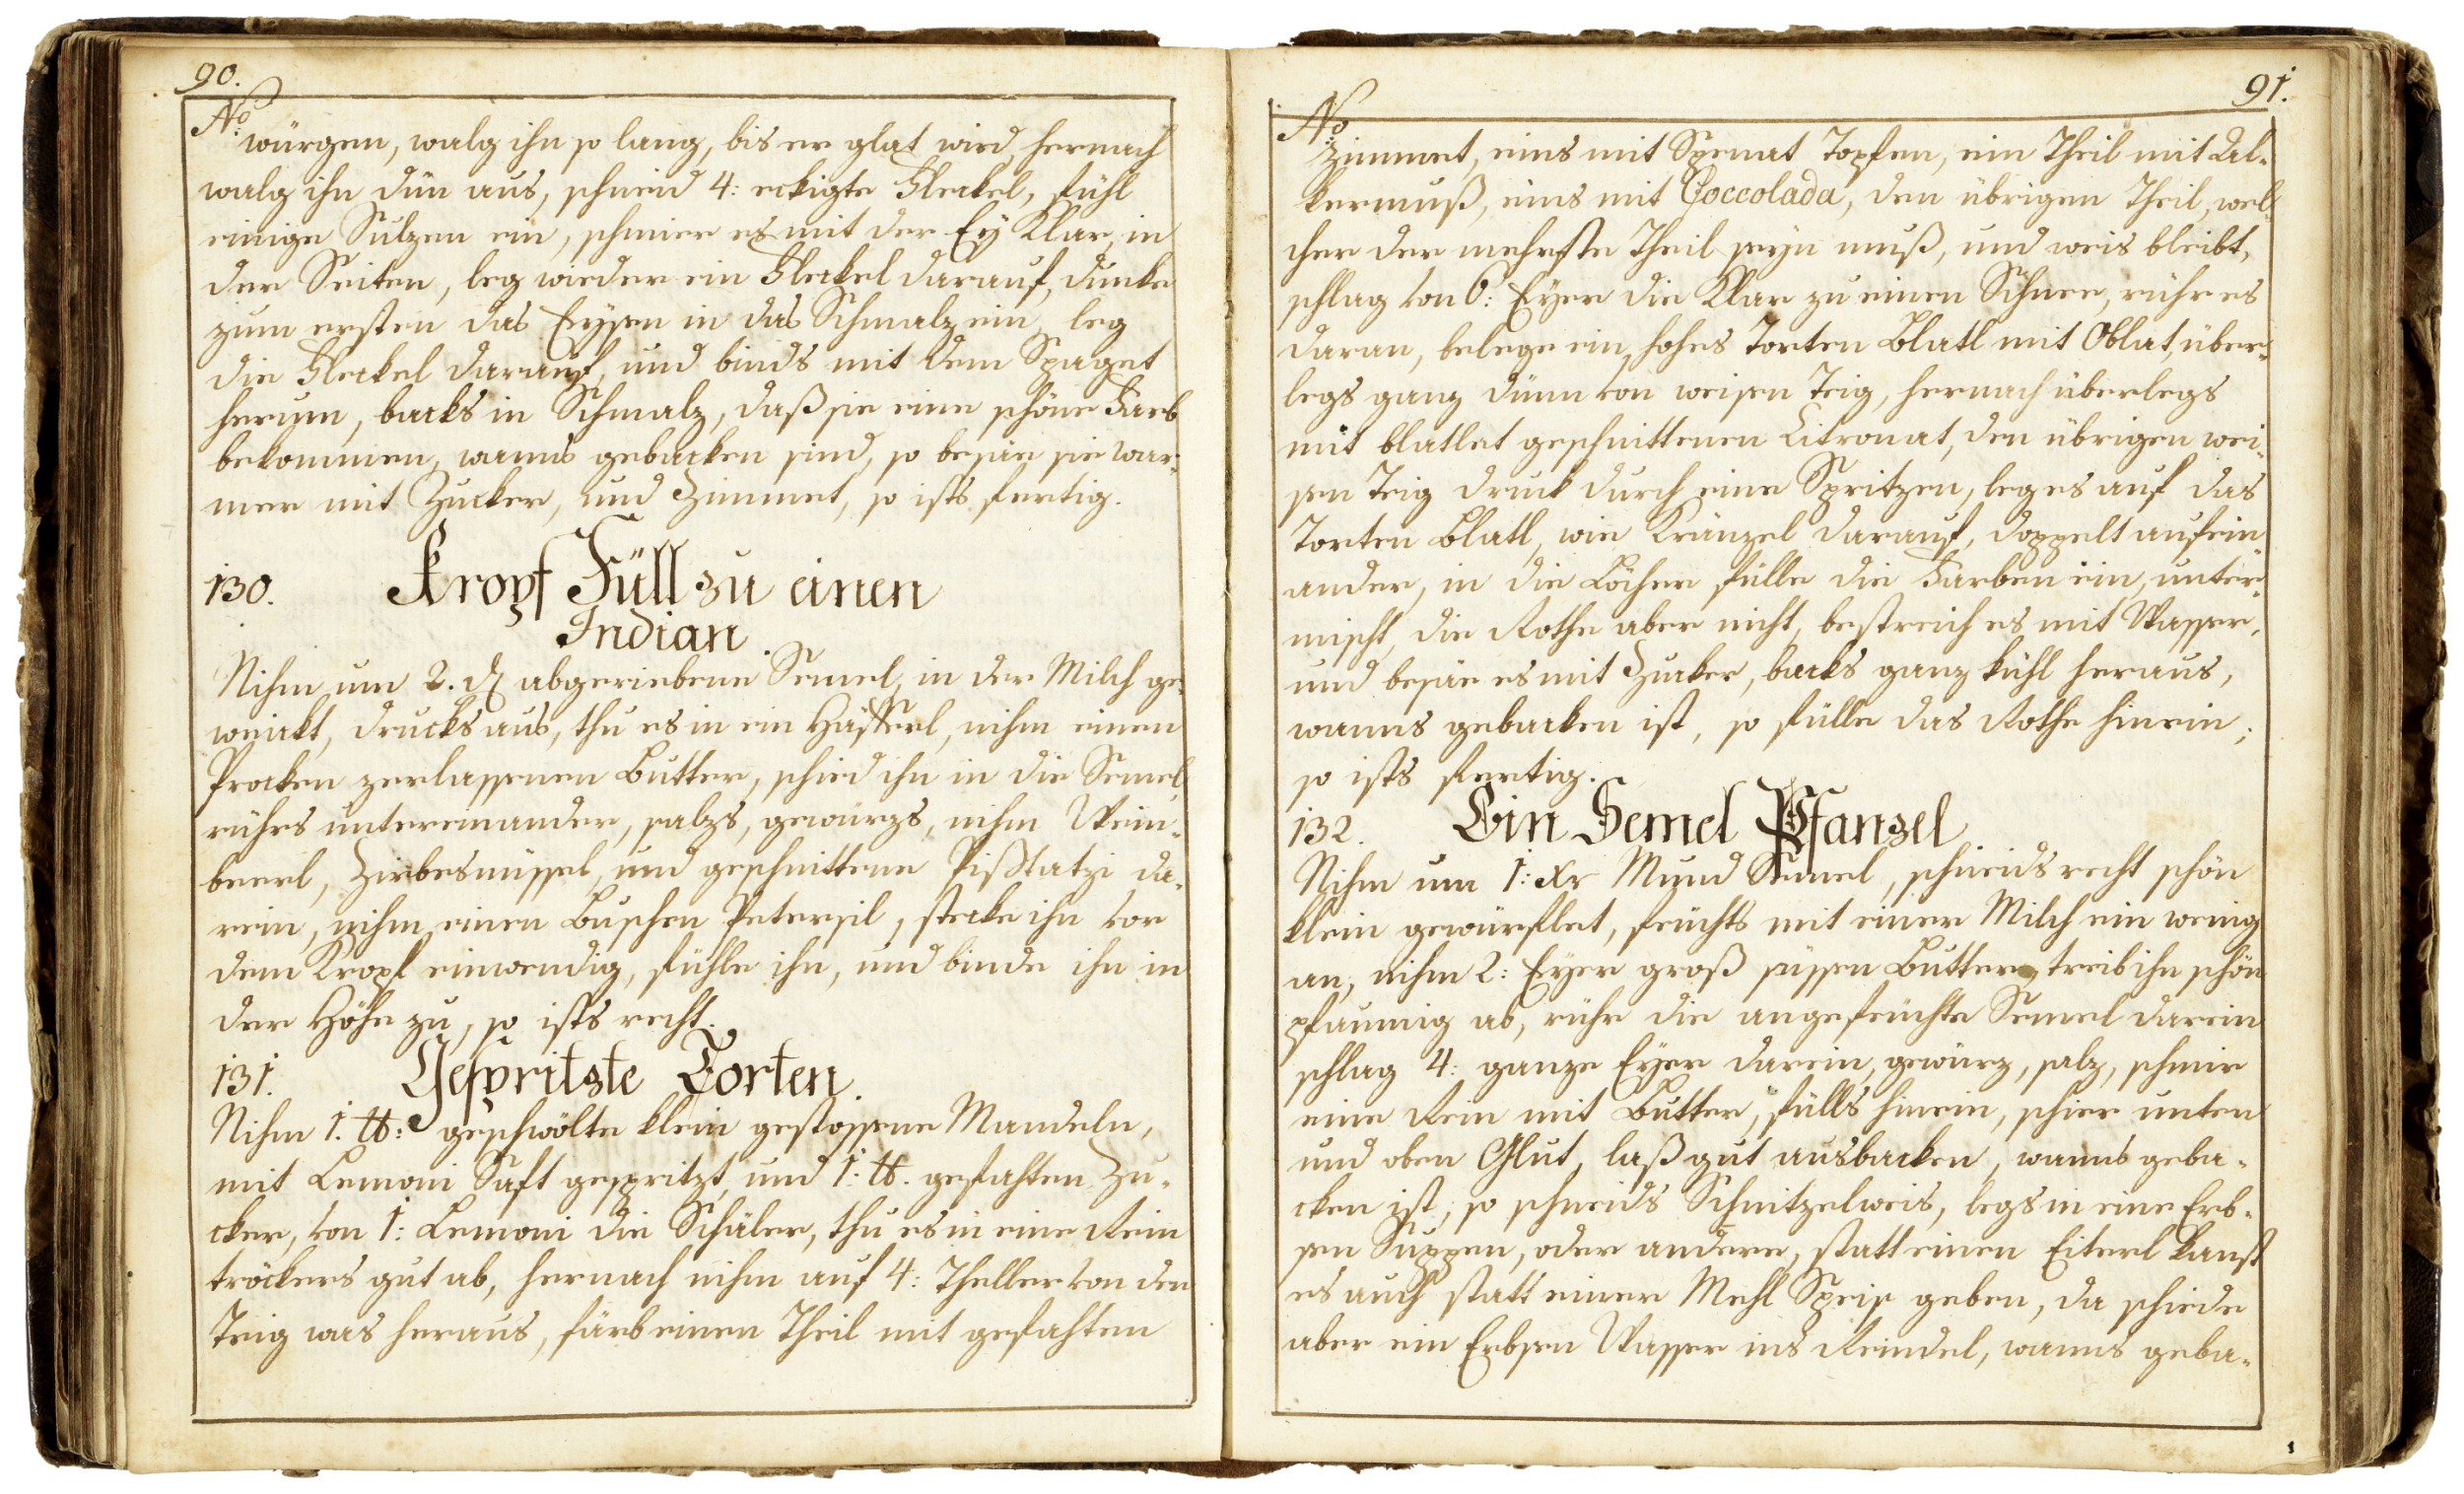 90.
No
würgen, walg ihn so lang, bis er glat wird, hernach
walg ihn dün aus, schneid 4: eckigte Fleckel, fühl
einige Sulzen ein, schmier es mit der Ey Klar, in
der Seiten, leg wieder ein Fleckel darauf, dunke
zum ersten das Eysen in das Schmalz ein, leg
die Fleckel darauf, und binds mit dem Spaget
herum, backs in Schmalz, daß sie eine schöne Farb
bekommen, wanns gebacken sind, so besäe sie war„
mer mit Zucker, und Zimmet, so ists fertig.
130. Kropf Füll zu einen
Indian.
Nihm um 2. d abgeriebene Semel, in der Milch ge„
weickt, drucks aus, thu es in ein Häfferl, nihm einen
Procken zerlassenen Butter, schied ihn in die Semel
rührs untereinander, salzs, gewürzs, nihm Wein„
beerl, Zirbesnüssel, und geschnittene Pißtatzi da„
rein, nihm einen Buschen Petersil, stecke ihn vor
dem Kropf einwendig, fühle ihn, und binde ihn in
der Höhe zu, so ists recht.
131. Gespritzte Torten.
Nihm 1. ℔: geschwölte klein gestossene Mandeln,
mit Lemoni Saft gespritzt, und 1: ℔. gefahten Zu„
cker, von 1: Lemoni die Schäler, thu es in eine Rein
tröckers gut ab, hernach nihm auf 4: Theller von den
Teig was heraus, färb einen Theil mit gefahten
91.
No
Zimmet, eins mit Spenat Topfen, ein Theil mit Al„
kermuß, eins mit Coccolada, den übrigen Theil, wel„
cher der mehrste Theil seyn muß, und weis bleibt,
schlag von 6: Eyer die Klar zu einen Schnee, rühr es
daran, belege ein hohes Torten Blatl mit Oblat, über„
legs ganz dünn von weisen Teig, hernach überlegs
mit blatlet geschnittenen Citronat, den übrigen wei„
sen Teig druck durch eine Spritzen, leg es auf das
Torten Blatl, wie Kränzel darauf, doppelt aufein„
ander, in die Löcher fülle die Farben ein, unter„
mischt, die Rothe aber nicht, bestreich es mit Wasser,
und besäe es mit Zucker, backs ganz kühl heraus,
wanns gebacken ist, so fülle das Rothe hinein;
so ists fertig.
132. Ein Semel Pfanzel
Nihm um 1: xr Mund Semel, schneids recht schön
klein gewürflet, feuchts mit einer Milch ein wenig
an, nihm 2: Eyer groß süssen Butter, treib ihn schön
pfaumig ab, rühr die angefeuchte Semel darein
schlag 4: ganze Eyer darein, gewürz, salz, schmir
eine Rein mit Butter, fülls hinein, schier unten
und oben Glut, laß gut ausbacken, wanns geba„
cken ist, so schneids Schnitzelweis, legs in eine Erb„
sen Suppen, oder andere, statt einen Eiterl kanst
es auch statt einer Mehl Speis geben, da schiede
aber ein Erbsen Wasser ins Reindel, wanns geba„